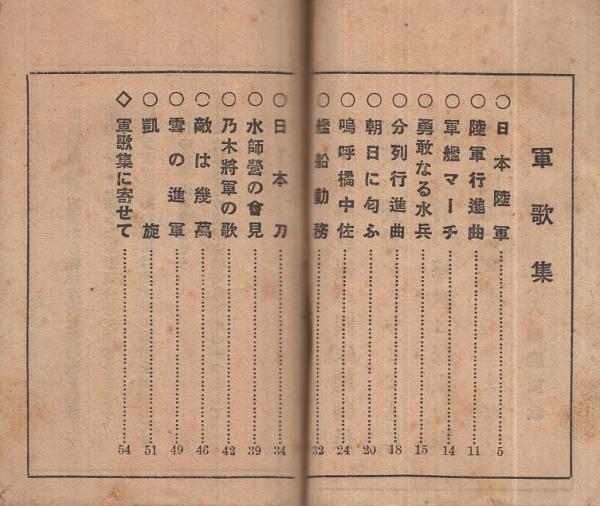 軍歌集
○日本陸軍……5
○陸軍行進曲……11
○軍艦マーチ……14
○勇敢なる水兵……15
○分列行進曲……18
○朝日に匂ふ……20
○嗚呼橘中佐……24
○艦船動務……32
○日本刀……34
○水師營の會見……39
○乃木將軍の歌……42
○敵は幾萬……46
○雪の進軍……49
○凱旋……51
◇軍歌集に寄せて……54